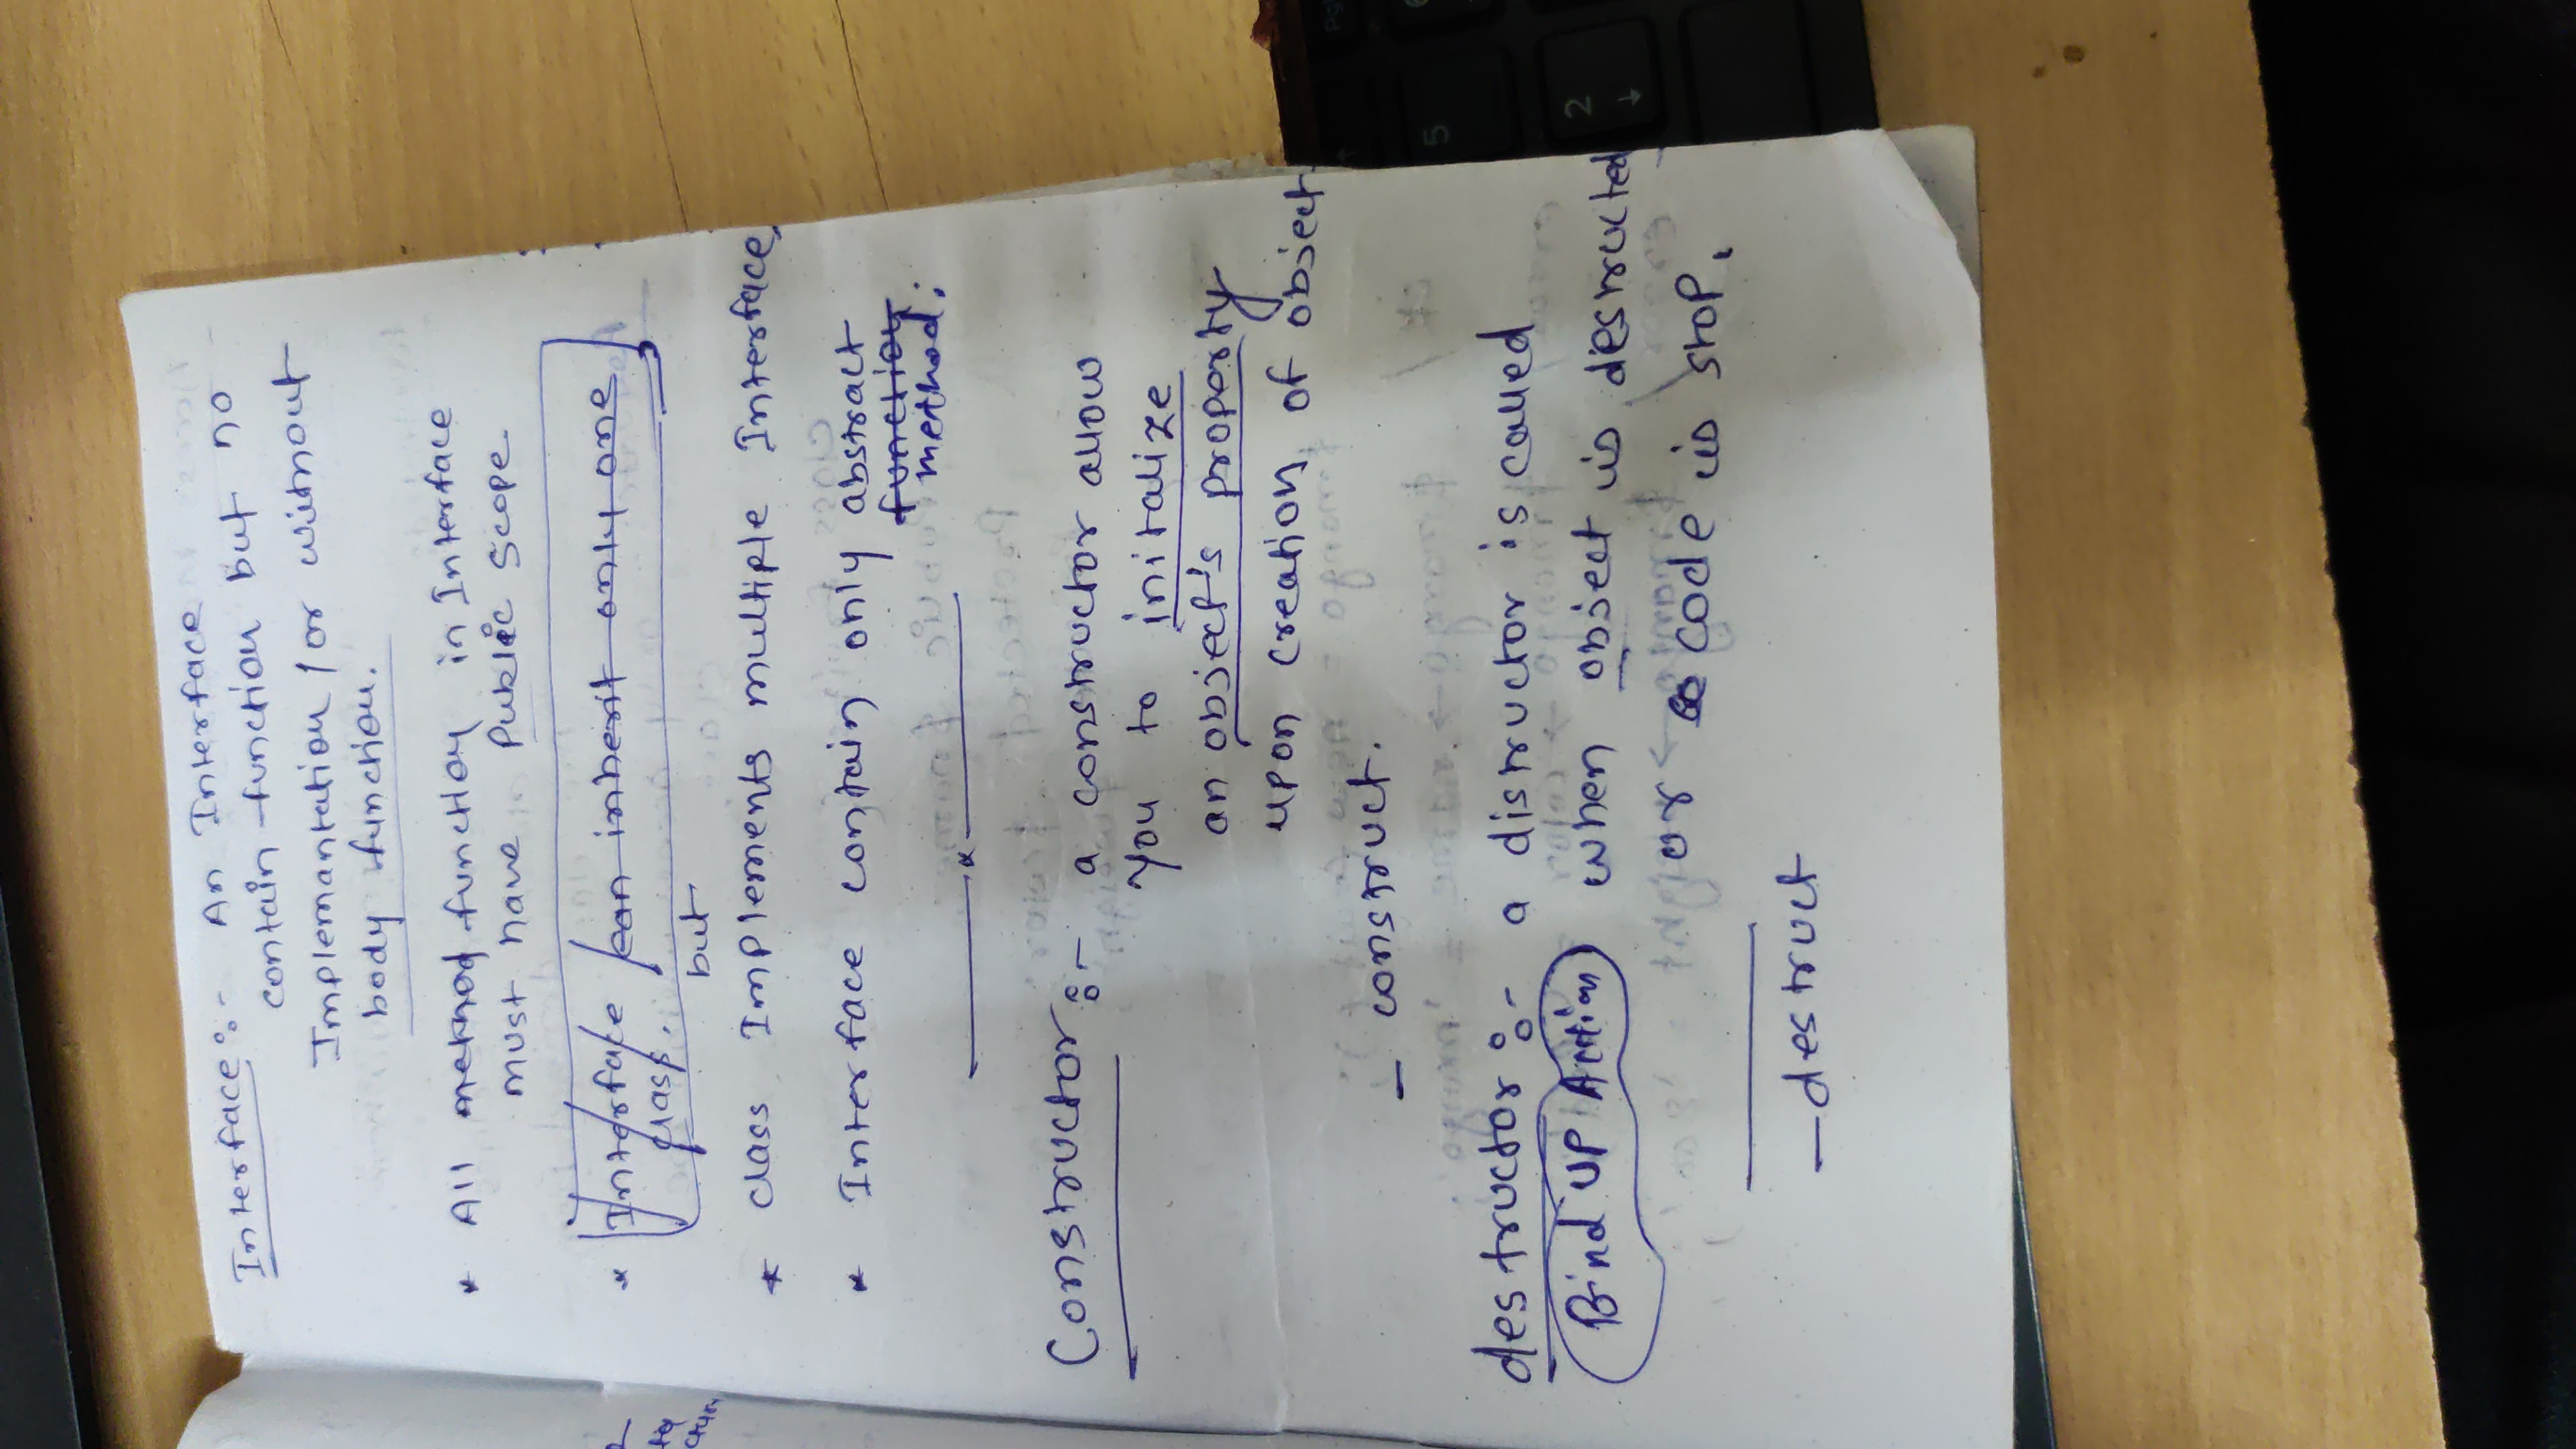 Interface :- An Interface
contain function but no
Implemantation / or without
body function.
* All method function in Interface
must have Public Scope
* Interface can inherit only one
class.
but
* class Implements multiple Interface,
* Interface contain only abstract
function
method;
x
Constructor :- a constructor allow
you to initalize
an object's property
upon creation of object
_ construct.
destructor :- a distructor is called
Bind UP Action when object is destructed
or code is stop.
_destruct
5
2
↓